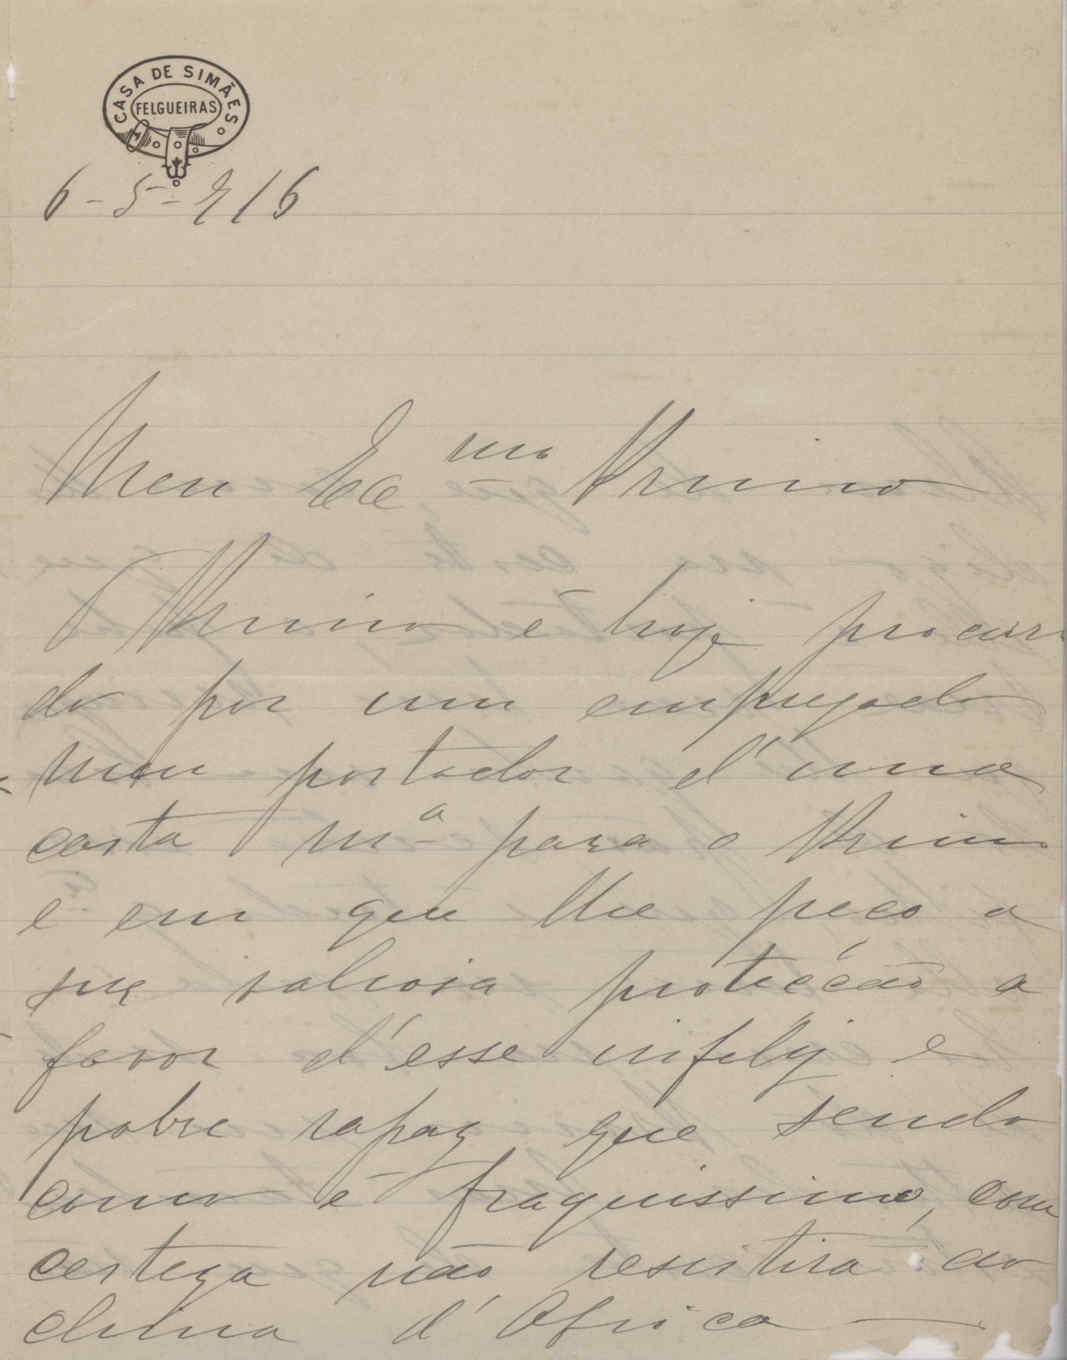 CASA DE SIMÃES
FELGUEIRAS
6-5-916
Meu Ex.mo Primo
O Primo é hoje procura
do por um empregado
meu portador d'uma
carta m.a para o Primo
e em que lhe peço a
sua valiosa protecção a
favor d'esse infeliz e
pobre rapaz que sendo
como é fraquissimo, com
certeza não resistirá ao
clima d'Africa